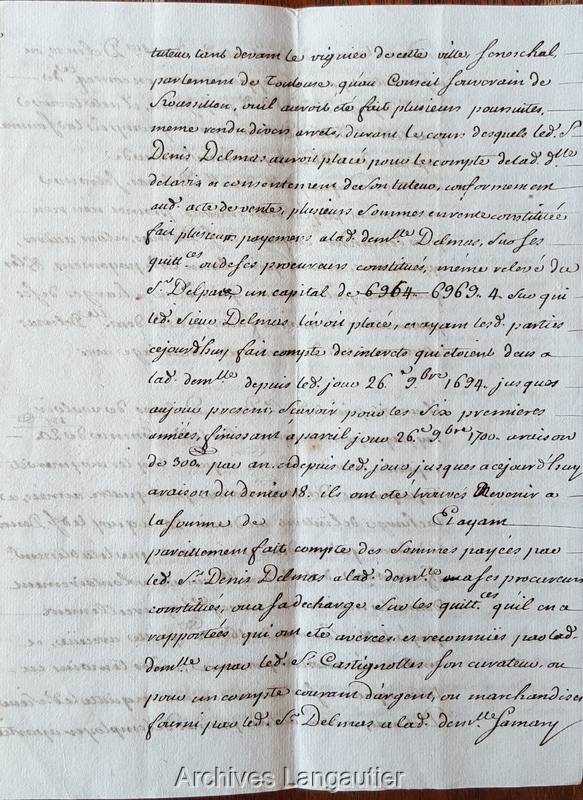 tuteur, tant devant le viguier de cette ville, seneschal,
parlement de Toulouse, quau Conseil souverain de
Roussillon, ou il auroit été fait plusieurs poursuites,
meme rendu divers arrets, durant le cours desquels led. Sr
Denis Delmas auroit placé pour le compte de lad. dlle
de l'avis et consentement de son tuteur, conformement
aud. acte de vente, plusieurs sommes en rente constituée
fait plusieurs payemens a lad. demlle Delmas, sur ses
quittces ou de ses procureurs constitués, même relevé du
Sr Delpas, un capital de 6964 6969. 4. sur qui
led. sieur Delmas l'avoit placé, et ayant lesd. parties
cejourd'huy fait compte des interets qui etoient deus a
lad. demlle depuis led. jour 26.e 9.bre 1694. jusques
aujour present, scavoir pour les six premieres
années, finissant a pareil jour 26.e 9.bre 1700. a raison
de 300 par an. et depuis led. jour jusques a cejourd'huy
a raison du denier 18. ils ont été trouvés Revenir a
la somme de Et ayant
pareillement fait compte des sommes payées par
led. Sr Denis Delmas a lad. demlle ou a ses procureurs
constitués, ou a sa decharge sur les quittces qu'il en a
rapportées, qui ont été averées et reconnues par lad.
demlle et par led. Sr Castignolles son curateur, ou
pour un compte courant d'argent, ou marchandises
fourni par led. Sr Delmas a lad. demlle Jamary
Archives Langautier